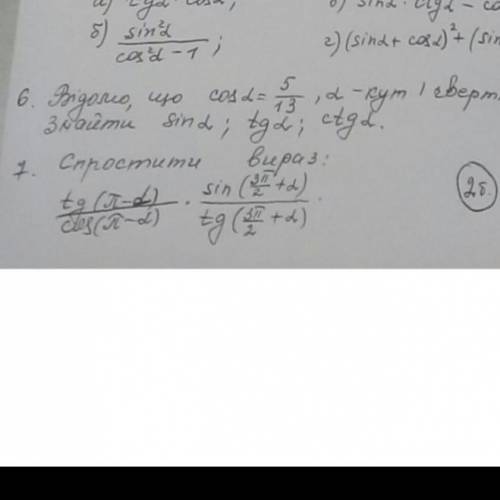 б) sin²α / cos²α − 1 ;
г) (sinα + cosα)² + (sin
6. Відомо, що cosα = 5/13, α – кут І чверт
Знайти sinα; tgα; ctgα.
7. Спростити вираз:
tg(π−α) / cos(π−α) · sin(3π/2 + α) / tg(3π/2 + α).
2б.